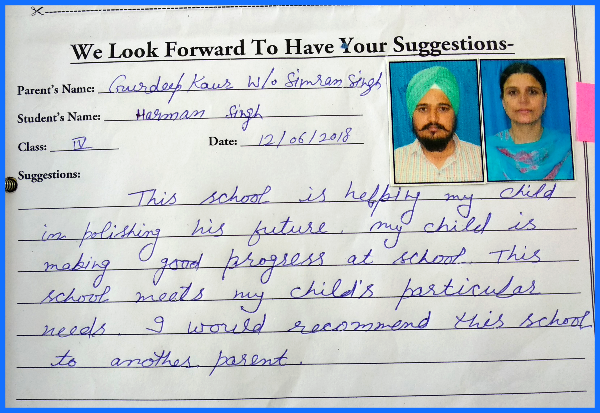 We Look Forward To Have Your Suggestions-
Parent's Name: Gurdeep Kaur W/o Simran Singh
Student's Name: Harman Singh
Class: IV Date: 12/06/2018
Suggestions:
This school is helping my child
in polishing his future. my child is
making good progress at school. This
school meets my child's particular
needs. I would recommend this school
to another parent.